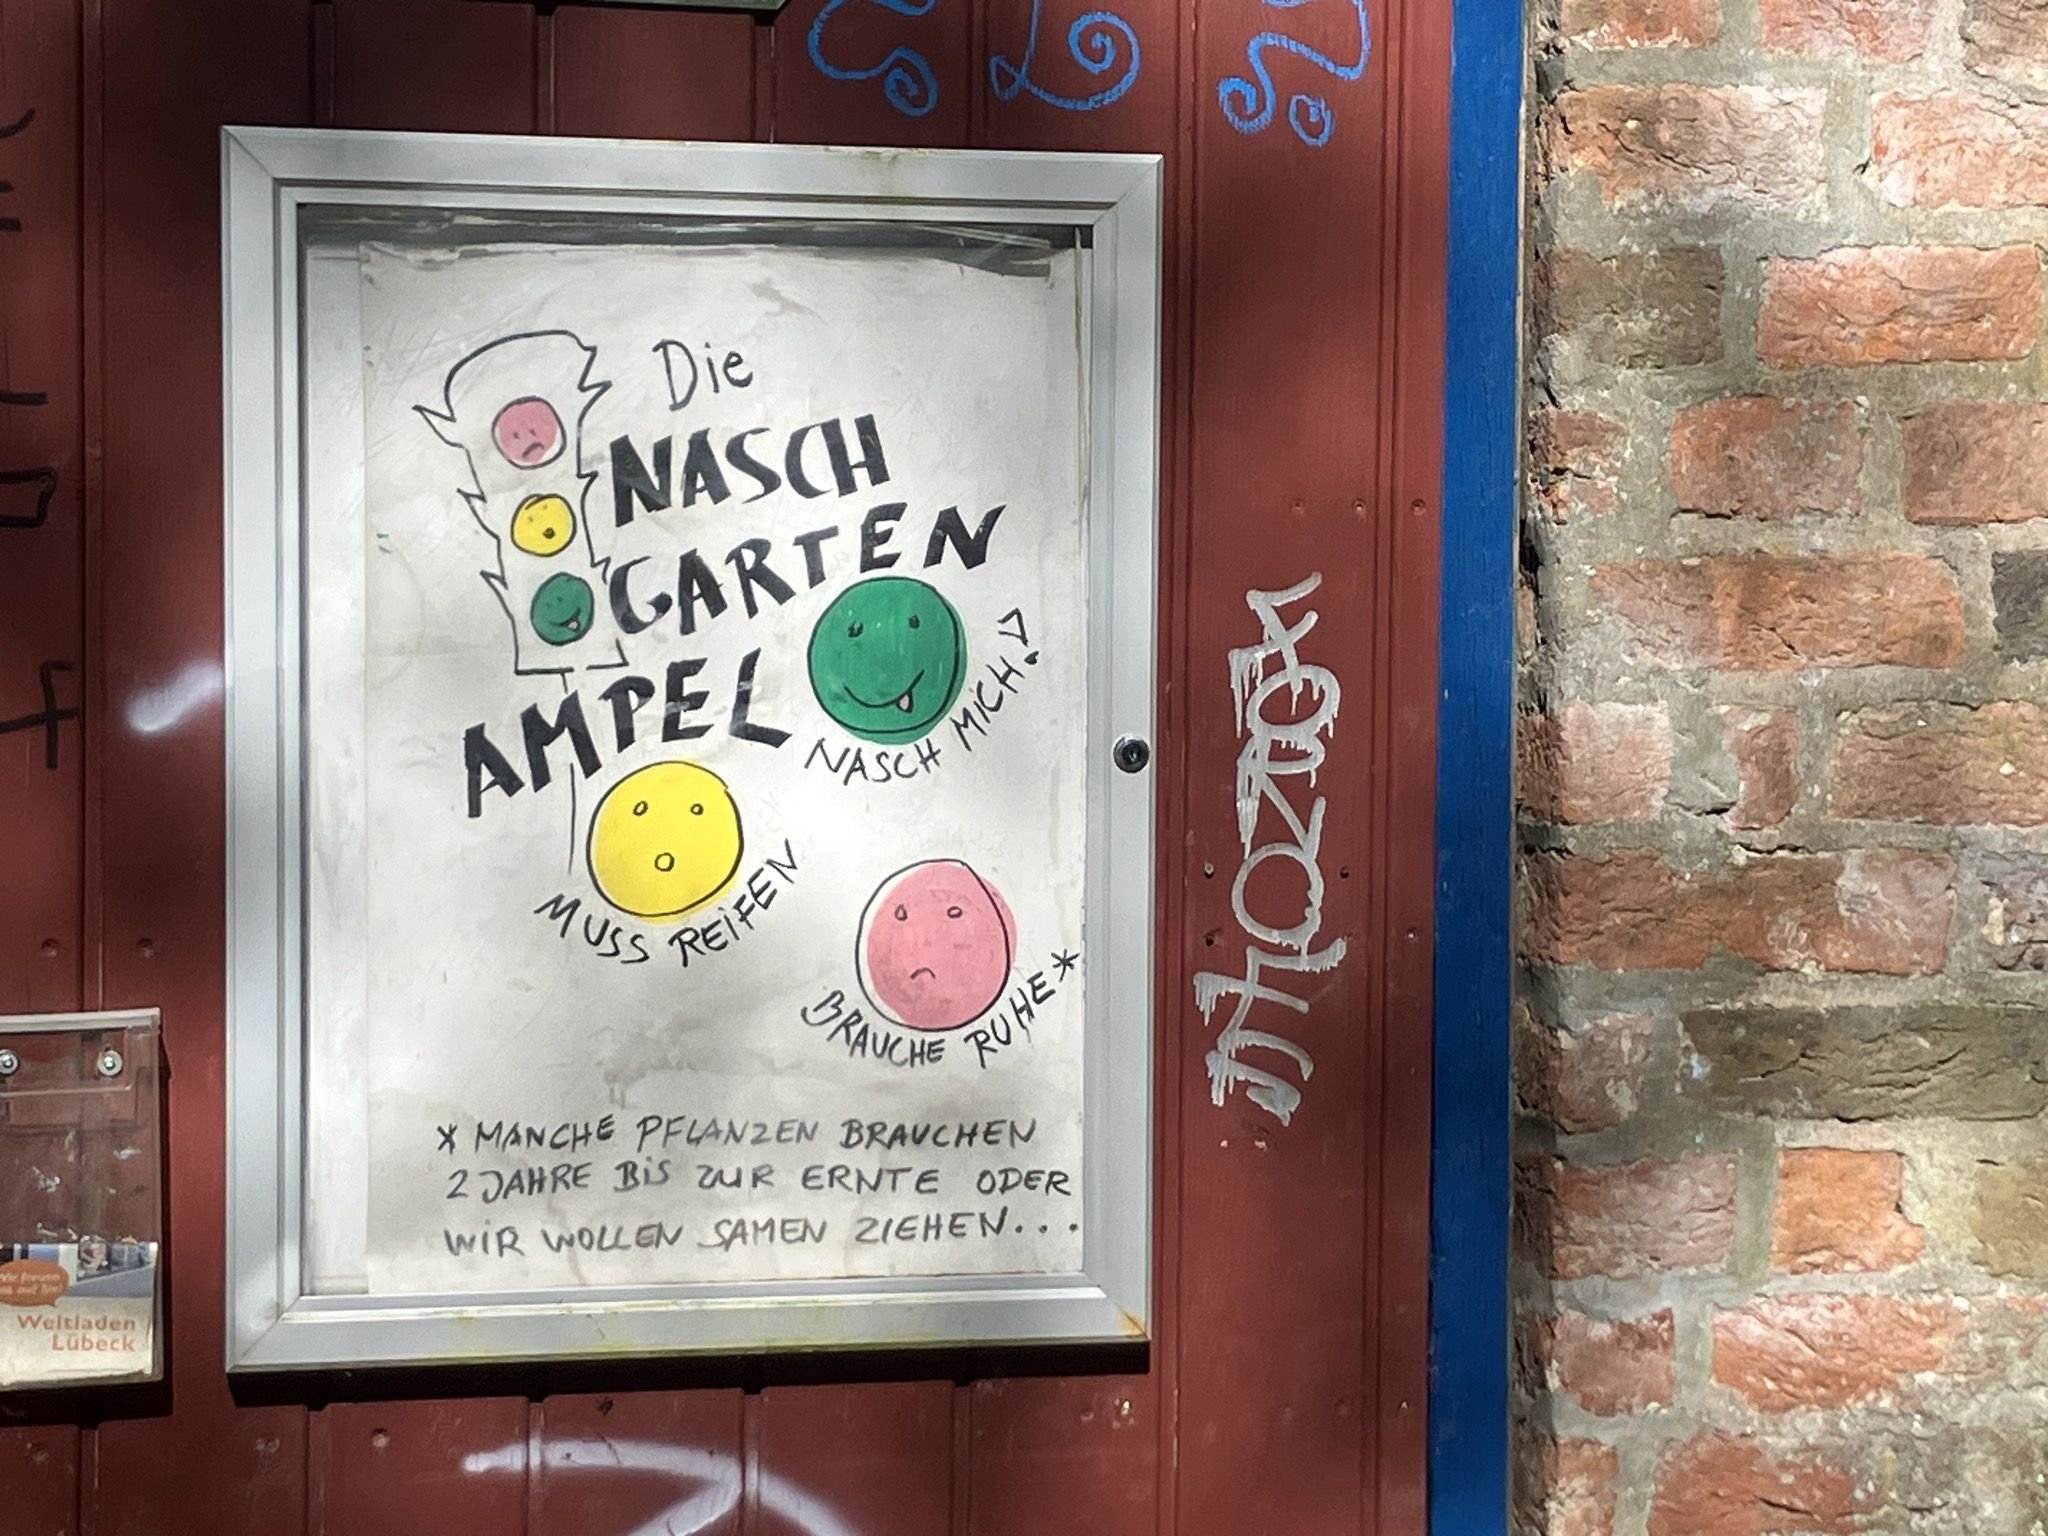 Die
NASCH
GARTEN
AMPEL
NASCH MICH!
MUSS REIFEN
BRAUCHE RUHE*
* MANCHE PFLANZEN BRAUCHEN
2 JAHRE BIS ZUR ERNTE ODER
WIR WOLLEN SAMEN ZIEHEN...
Wir freuen
uns auf Sie!
Weltladen
Lübeck